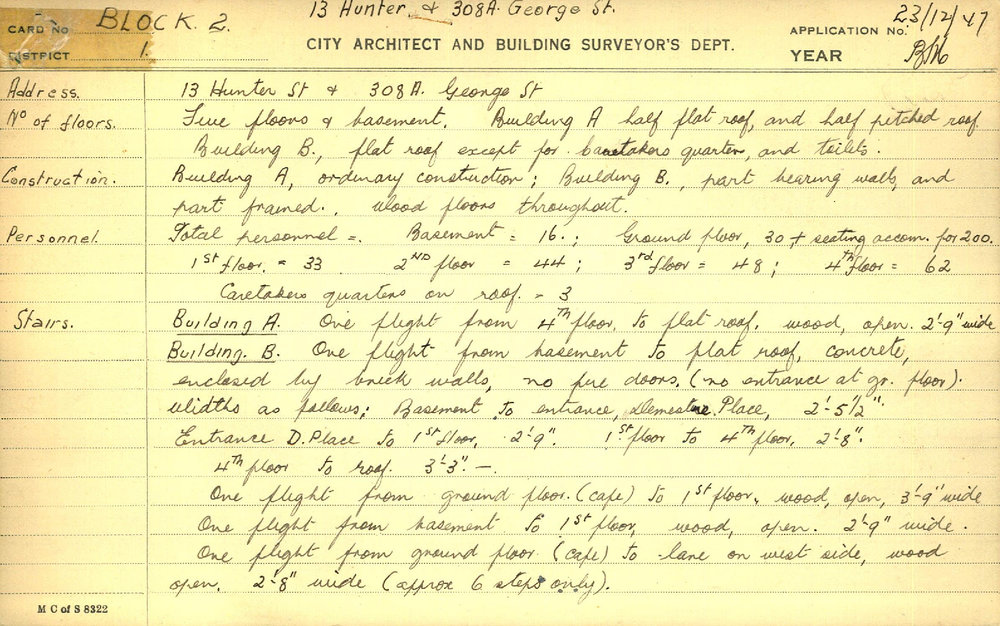 13 Hunter & 308A. George St.
CARD No. BLOCK. 2. APPLICATION No. 23/12/47
DISTRICT 1. CITY ARCHITECT AND BUILDING SURVEYOR'S DEPT. YEAR
Address. 13 Hunter St & 308A. George St
No of floors. Five floors & basement. Building A half flat roof, and half pitched roof
Building B., flat roof except for caretakers quarters, and toilets.
Construction. Building A, ordinary construction; Building B., part bearing walls, and
part framed. Wood floors throughout.
Personnel. Total personnel =. Basement = 16.; Ground floor, 30 + seating accom. for 200.
1st floor. = 33 2ND floor = 44; 3rd floor = 48; 4th floor = 62
Caretakers quarters on roof. - 3
Stairs. Building A. One flight from 4TH floor, to flat roof, wood, open. 2'-9" wide
Building. B. One flight from basement to flat roof, concrete,
enclosed by brick walls, no fire doors. (no entrance at gr. floor).
Widths as follows; Basement to entrance, Demestre Place, 2'-5½".
Entrance D. Place to 1st floor, 2'-9". 1st floor to 4TH floor, 2'-8".
4TH floor to roof. 3'-3". —.
One flight from ground floor. (cafe) to 1st floor, wood, open, 3'-9" wide
One flight from basement to 1st floor, wood, open. 2'-9" wide.
One flight from ground floor (cafe) to lane on west side, wood
open. 2'-8" wide (approx 6 steps only).
M C of S 8322